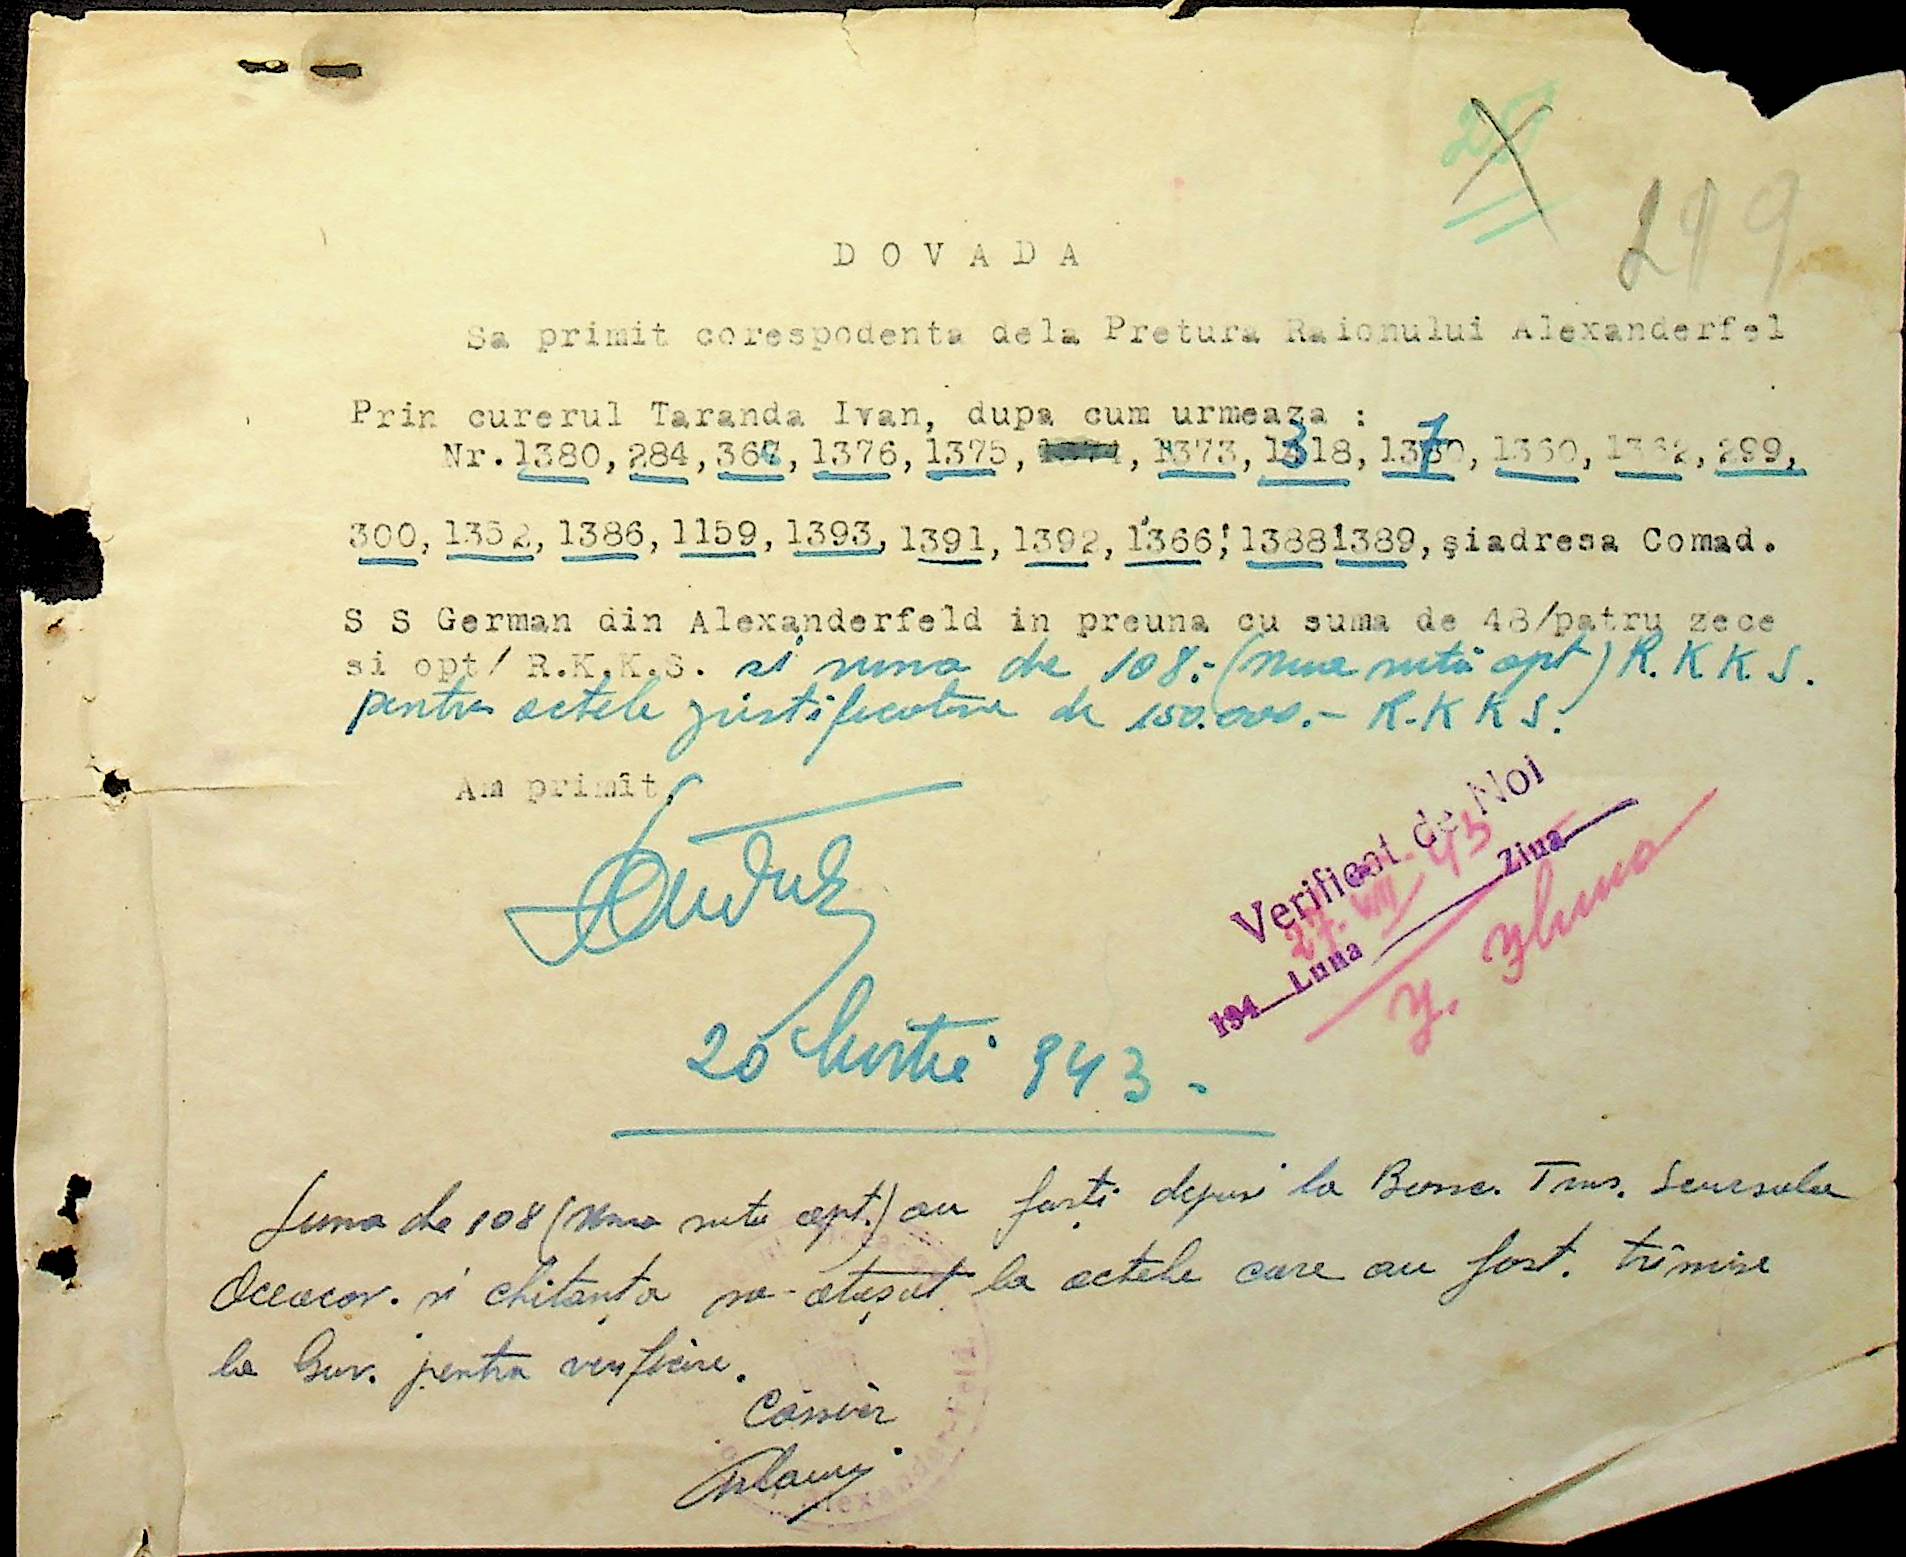 219
D O V A D A
Sa primit corespodenta dela Pretura Raionului Alexanderfel
Prin curerul Taranda Ivan, dupa cum urmeaza :
Nr.1380, 284, 367, 1376, 1375, 1373, 1318, 1370, 1360, 1362, 299,
300, 1352, 1386, 1159, 1393, 1391, 1392, 1366, 1388 1389, şiadresa Comad.
S S German din Alexanderfeld in preuna cu suma de 48/patru zece
si opt/ R.K.K.S. si suma de 108.- (una sută opt) R.K.K.S.
pentru actele justificative de 150.000.- R.K.K.S.
Am primit,
Verificat de Noi
27.VIII-43
194 Luna Ziua
20 Martie 943 -
Suma de 108 (una suta opt.) au fost depusi la Banc. Trns. Sucursala
Oceacov. si chitanța sa-atașat la actele care au fost. trimise
la Guv. pentru verificare.
Casier
Alexanderfeld